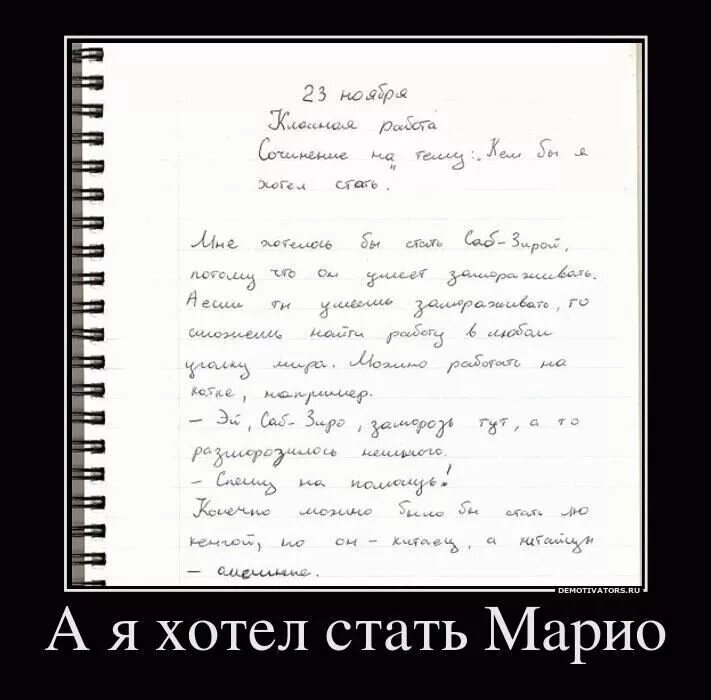 23 ноября
Классная работа
Сочинение на тему: "Кем бы я
хотел стать".
Мне хотелось бы стать Саб-Зирой,
потому что он умеет замораживать.
А если ты умеешь замораживать, то
сможешь найти работу в любом
уголку мира. Можно работать на
катке, например.
- Эй, Саб-Зиро, заморозь тут, а то
разморозилось немного.
- Спешу на помощь!
Конечно можно было бы стать лю
кенгой, но он - китаец, а китайцы
- смешные.
DEMOTIVATORS.RU
А я хотел стать Марио